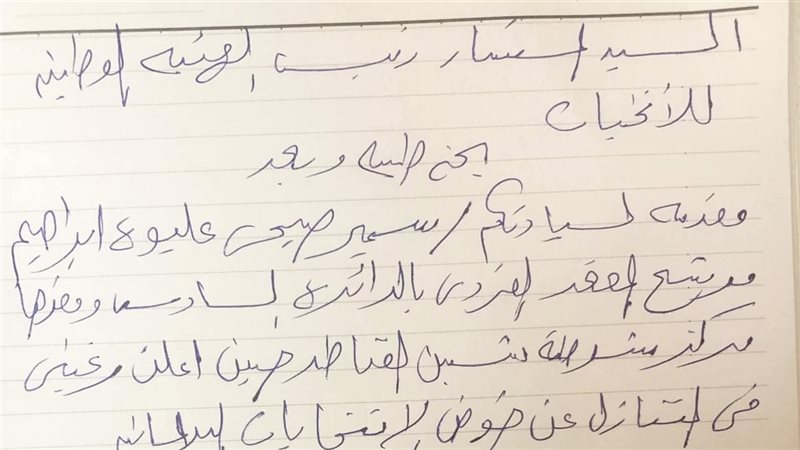 السيد المستشار رئيس الهيئه الوطنيه
للأنتخابات
تحيه طيبه وبعد
مقدمه لسيادتكم / سمير صبحى عليوه ابراهيم
مرشح المقعد الفردى بالدائرة السادسه ومقرها
مركز شرطة شبين القناطر حيث اعلن رغبتى
فى التنازل عن خوض الانتخابات البرلمانيه